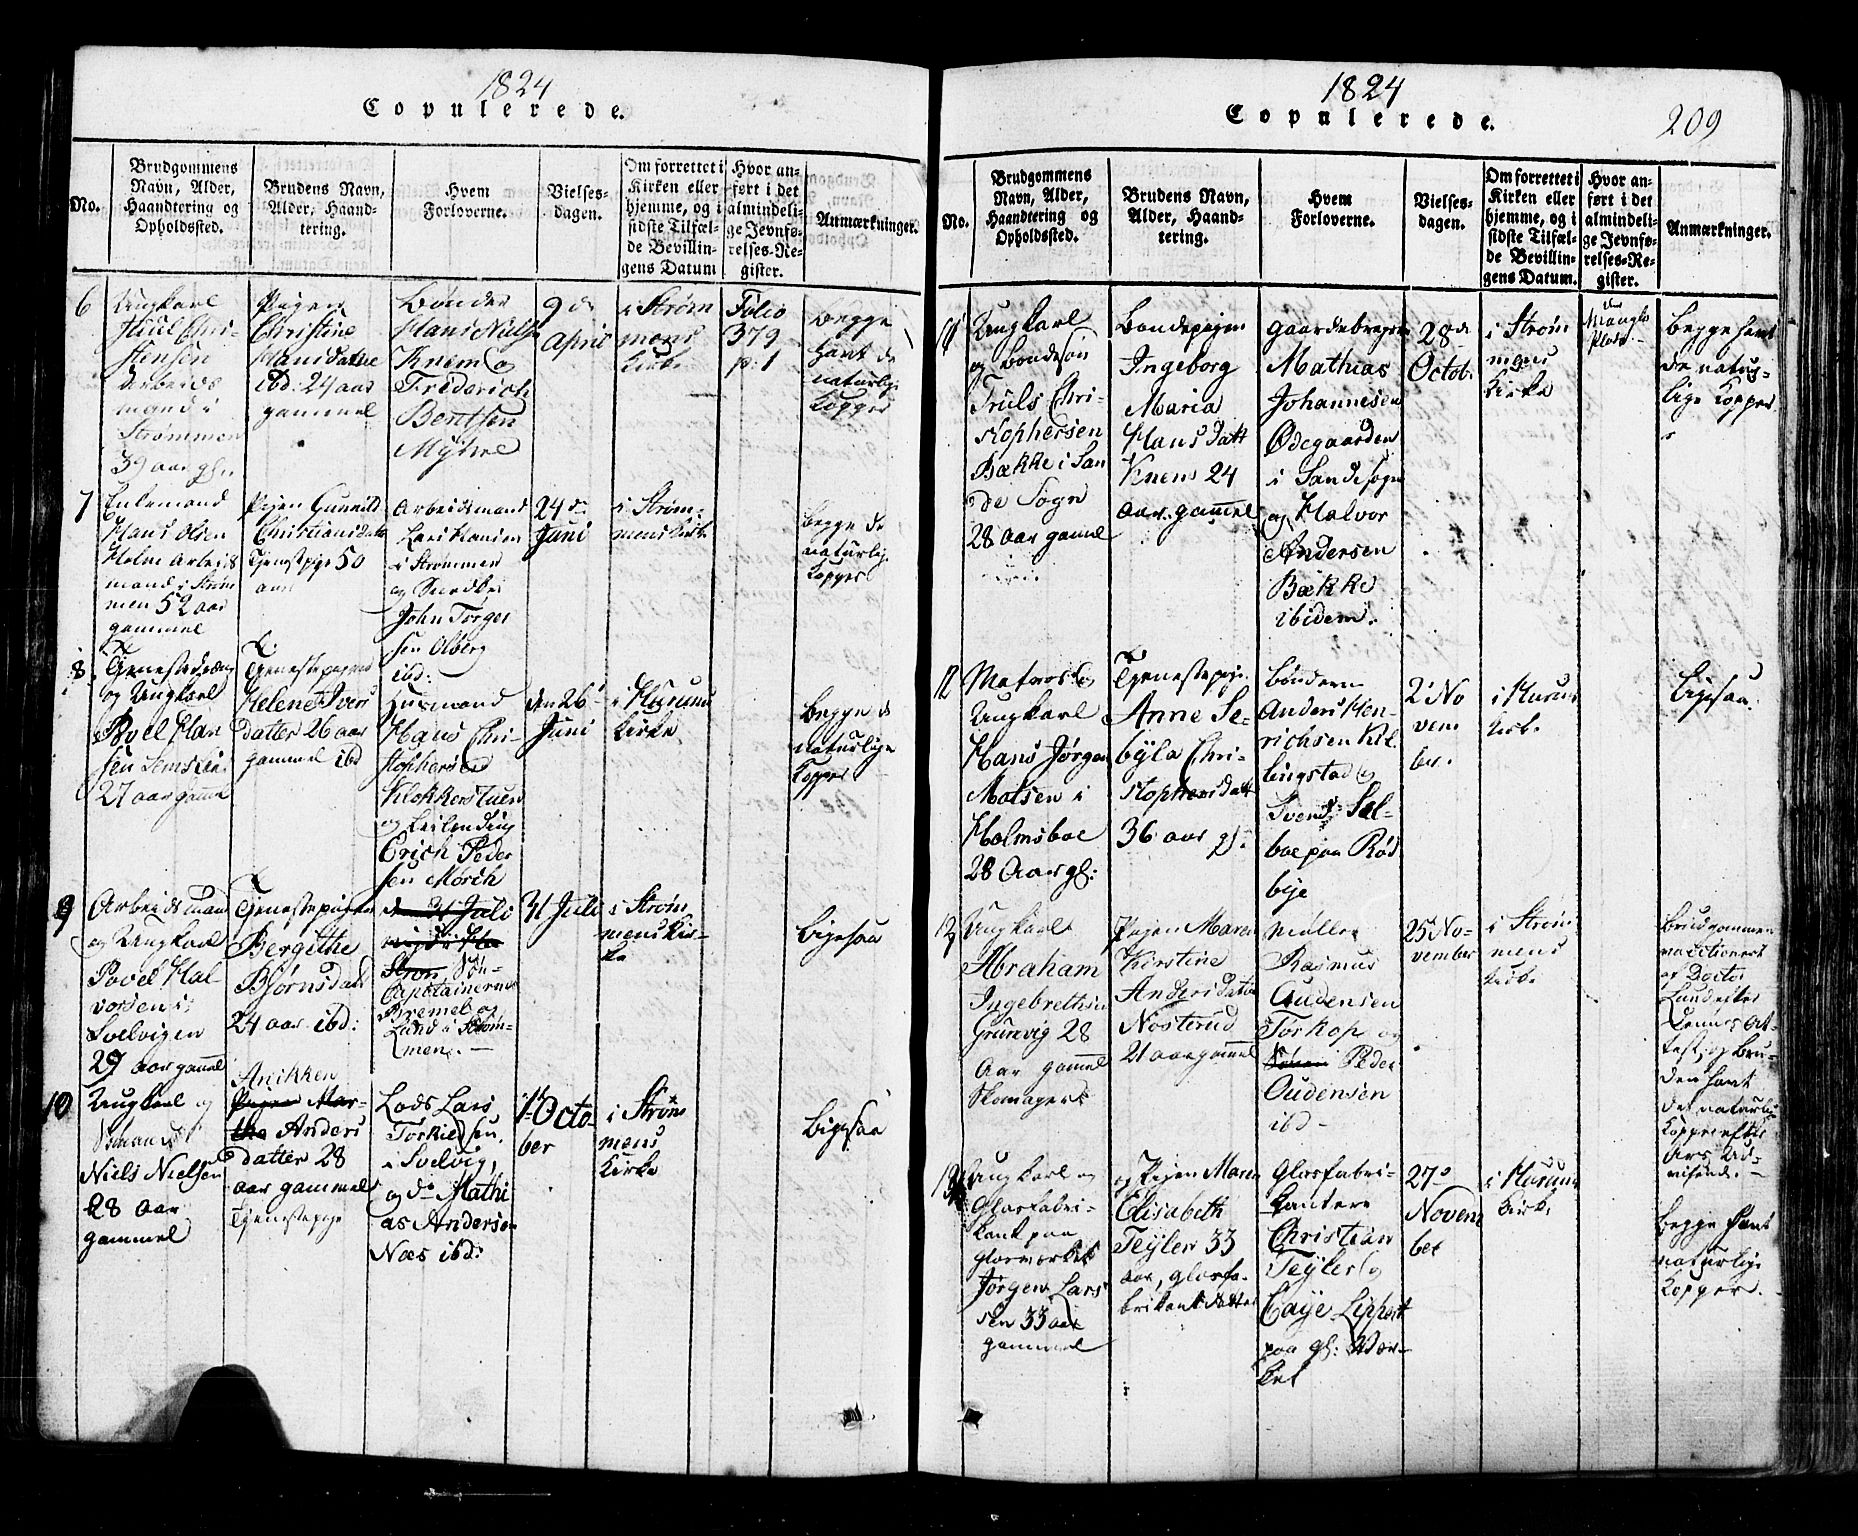 1824
Copulerede.
No.
Brudgommens
Navn, Alder,
Haandtering og
Opholdssted.
Brudens Navn,
Alder, Haand-
tering.
Hvem
Forloverne.
Vielses-
dagen.
Om forrettet i
Kirken eller
hjemme, og i
sidste Tilfæl-
de Bevillin-
gens Datum
Hvor an-
ført i det
almindeli-
ge Jevnfø-
relses-Re-
gister.
Anmærkninger.
6
Ungkarl
Juul Chri-
stensen
Arbeids
mand i
Strømmen
39 aar gln
Pigen
Christine
Hansdatter
ibd. 24 aar
gammel
Bønder
Hans Niels
Knem og
Friderich
Bentsen
Myhre
9 de
April
i Strøm
mens
Kirke
Folio
379
p. 1
begge
havt de
naturlige
Kopper
7
Enkemand
Hans Olsen
Holm Arbeids
mand i Strøm
men 52 aar
gammel
Pigen Gunnild
Christiansdatt
Tjenstpige 50
aar
Arbeidsmand
Lars Hansen
i Strømmen
og
John Torger
sen Olberg
ibd:
24 de
Juni
i Strøm-
mens Kirke
begge de
naturlige
Kopper
8.
Tjenestedreng
og Ungkarl
Povel Han
sen
27 aar gamel
Tjenestepigen
Helene Ivers
datter 26 aar
gammel ibd
Husmand
Hans Chri-
stophersen
Klokkerstuen
og Leilending
Erich Peder
sen Mörch
den 26
Juni
i Hurum
Kirke
Begge de
naturlige
Kopper
9
Arbeidsmand
og Ungkarl
Povel Hal
vorsen i
Svelvigen
29 aar gamel
Tjenestepigen
Bergithe
Bjørnsdatt
24 aar ibd:
den 31 Juli
Capitainerne
Bremel og
Lund i Strøm-
men.
31 Juli
i Strøm
mens Kir-
ke
Ligesaa
10
Ungkarl og
Niels Nielsen
28 aar
gammel
Anikken
Pigen Mar-
the Anders
datter 28
aar gammel
Tjenestepige
Lods Lars
Torkildsen,
i Svelvig,
og do Mathi
as Andersen
Næs ibd:
1 Octo-
ber
i Strøm
mens
Kirke
Ligesaa
1824
Copulerede.
209
No.
Brudgommens
Navn, Alder,
Haandtering og
Opholdssted.
Brudens Navn,
Alder, Haand-
tering.
Hvem
Forloverne.
Vielses-
dagen.
Om forrettet i
Kirken eller
hjemme, og i
sidste Tilfæl-
de Bevillin-
gens Datum.
Hvor an-
ført i det
almindeli-
ge Jevnfø-
relses-Re-
gister.
Anmærkninger.
11
Ungkarl
og Bondesøn
Truls Chri-
stophersen
Bække i San
de Sogn
28 aar gamel
Bondepigen
Ingeborg
Maria
Hans Datt
Knem 24
aar gammel
Gaardebruger
Mathias
Johannesen
Ødegaarden
i Sande sogn
og Halvor
Andersen
Bække
ibidem.
28 de
Octob.
i Strøm
mens
Kirke
Mangler
Plads
Begge havt
de natur-
lige Kopper
12
Matros og
Ungkarl
Hans Jørgen
Matsen i
Holmsboe
28 Aar gl:
Tjenestepige
Anne Se-
byla Chri-
stophersdatt
36 aar gl:
bønderne
Anders Hen-
richsen Kil
lingstad og
Svend Sel-
boe paa Rød
bye
2 No
vem
ber.
i Hurum
Kirk.
Ligesaa
Ungkarl
Abraham
Ingebrethsen
Grunvig 28
Aar gammel
Skomager
Pigen Maren
Kirstine
Andersdatter
Nosterud
21 aar gammel
møller
Rasmus
Oudensen
Torkop og
Peder
Oudensen
ibd
25 No-
vember
i Strøm
mens
Kirke
Brudgommen
vaccineret
af Doctor
Lund efter
Dennes At-
test, og Bru-
den havt
det naturlige
Kopper efter
Ars Ud-
visende.
Ungkarl og
Glasfabri-
kant paa
Glasværket
Jørgen Lars
sen 33 aar
gammel
og Pigen Maren
Elisabeth
Teyler 33
aar, glasfa-
brikant datter
Glasfabri-
kantere
Christian
Teyler og
Caye Lippert
paa gl: Vær-
ket
27
Novem
ber
i Hurum
Kirk.
begge havt
naturlige
Kopper.